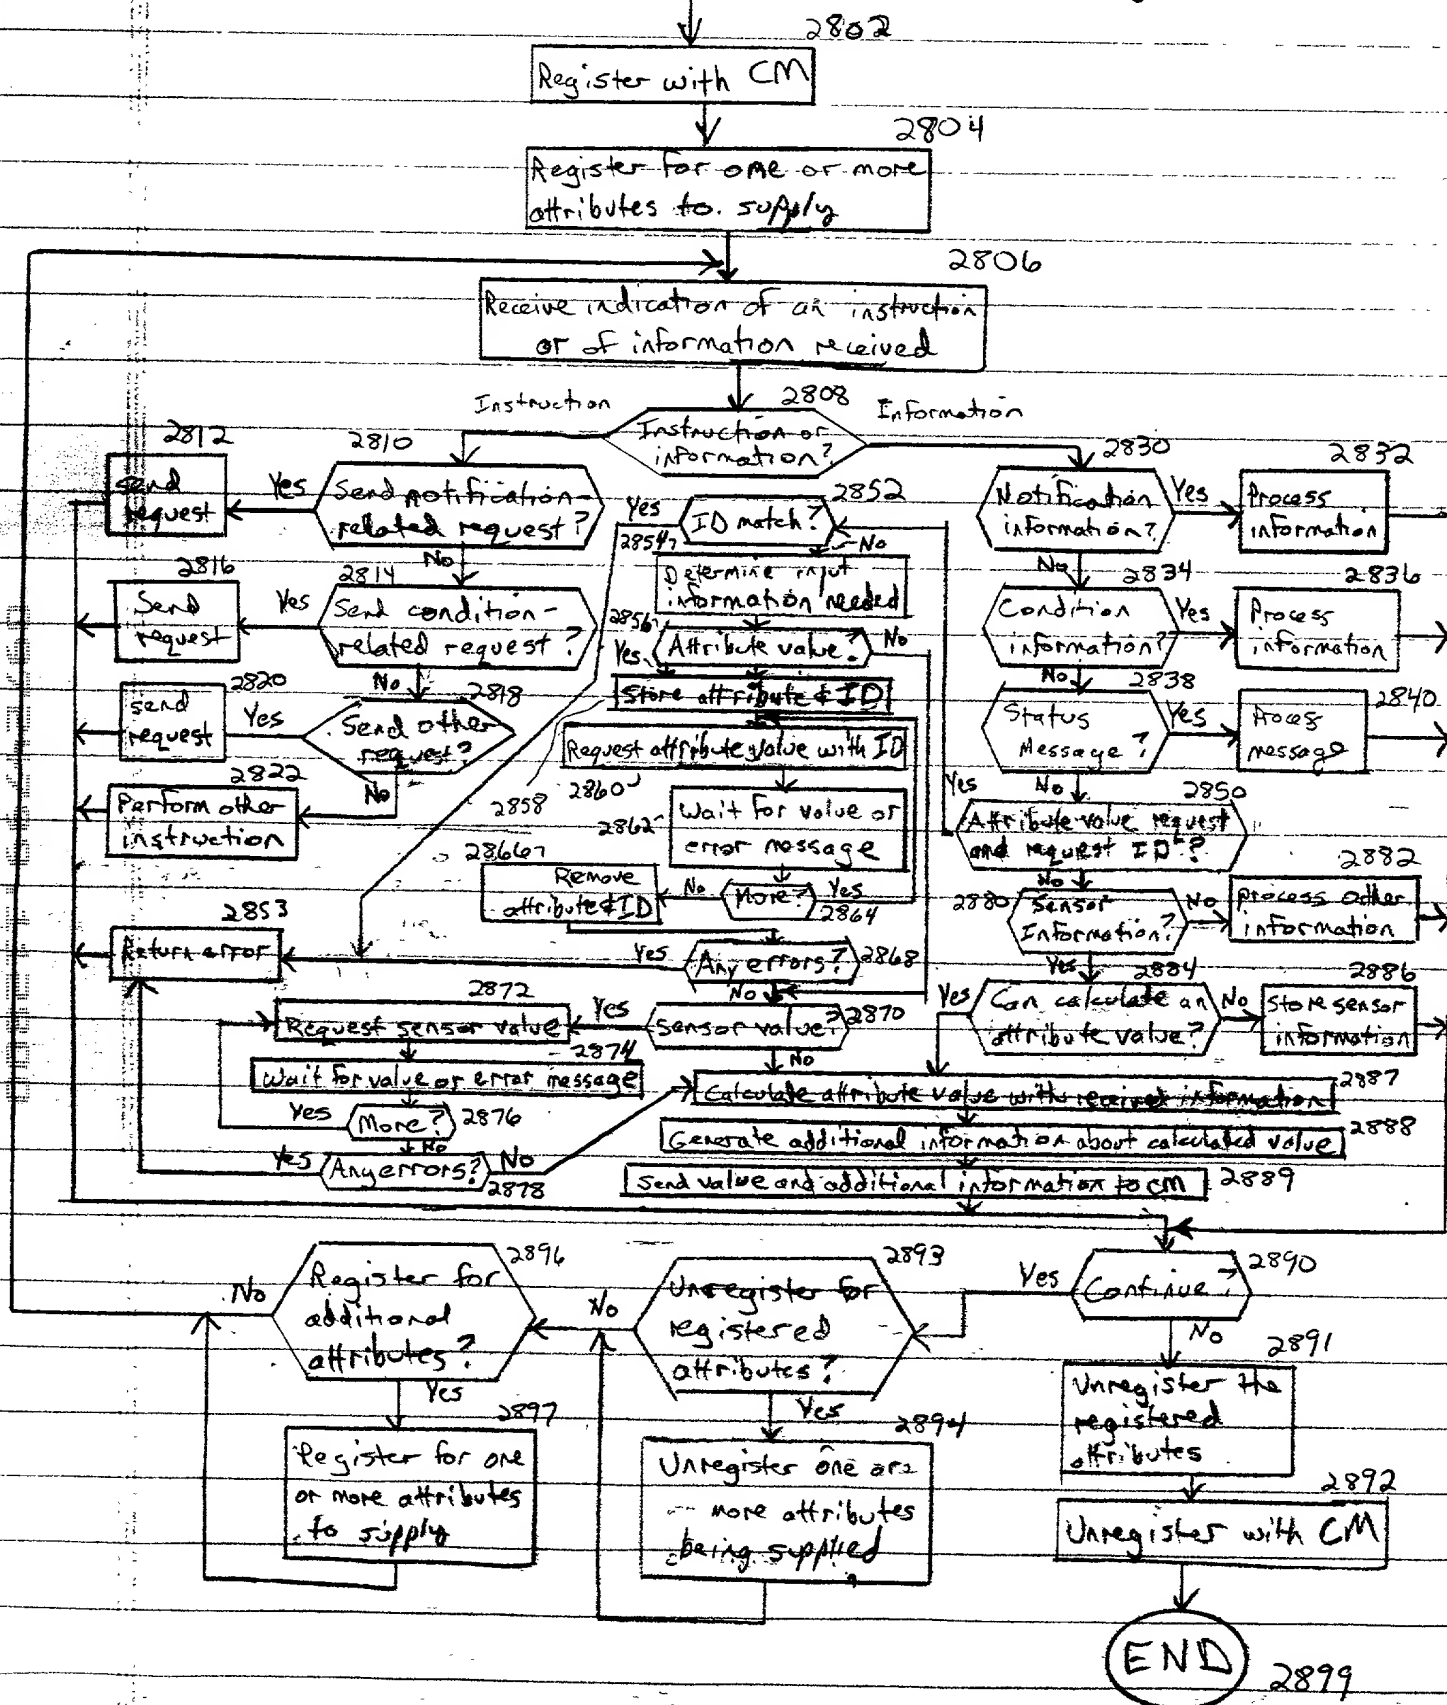 2802
Register with CM
2804
Register for one or more
attributes to supply
2806
Receive indication of an instruction
or of information received
2808
Instruction
Information
Instruction or
information?
2812
Send
request
2810
Yes
Send notification-
related request?
No
2816
Send
request
2814
Yes
Send condition-
related request?
No
2820
Send
request
2818
Yes
Send other
request?
No
2822
Perform other
instruction
2852
Yes
ID match?
No
2854
Determine input
information needed
2856
Attribute value?
No
Yes
Store attribute & ID
2858
Request attribute value with ID
2860
2862
Wait for value or
error message
2866
Remove
attribute & ID
No
More?
Yes
2864
2853
Return error
Yes
Any errors?
2868
No
2872
Request sensor value
Yes
Sensor value?
2870
No
2874
Wait for value or error message
Yes
More?
2876
No
Yes
Any errors?
No
2878
2830
Notification
information?
Yes
2832
Process
information
No
2834
Condition
information?
Yes
2836
Process
information
No
2838
Status
Message?
Yes
2840
Process
message
No
2850
Yes
Attribute value request
and request ID?
No
2880
Sensor
Information?
No
2882
Process other
information
Yes
2884
Yes
Can calculate an
attribute value?
No
2886
Store sensor
information
2887
Calculate attribute value with received information
2888
Generate additional information about calculated value
Send value and additional information to CM
2889
2890
Continue?
Yes
No
2893
Unregister for
registered
attributes?
No
Yes
2896
Register for
additional
attributes?
No
Yes
2897
Register for one
or more attributes
to supply
2894
Unregister one or
more attributes
being supplied
2891
Unregister the
registered
attributes
2892
Unregister with CM
END
2899